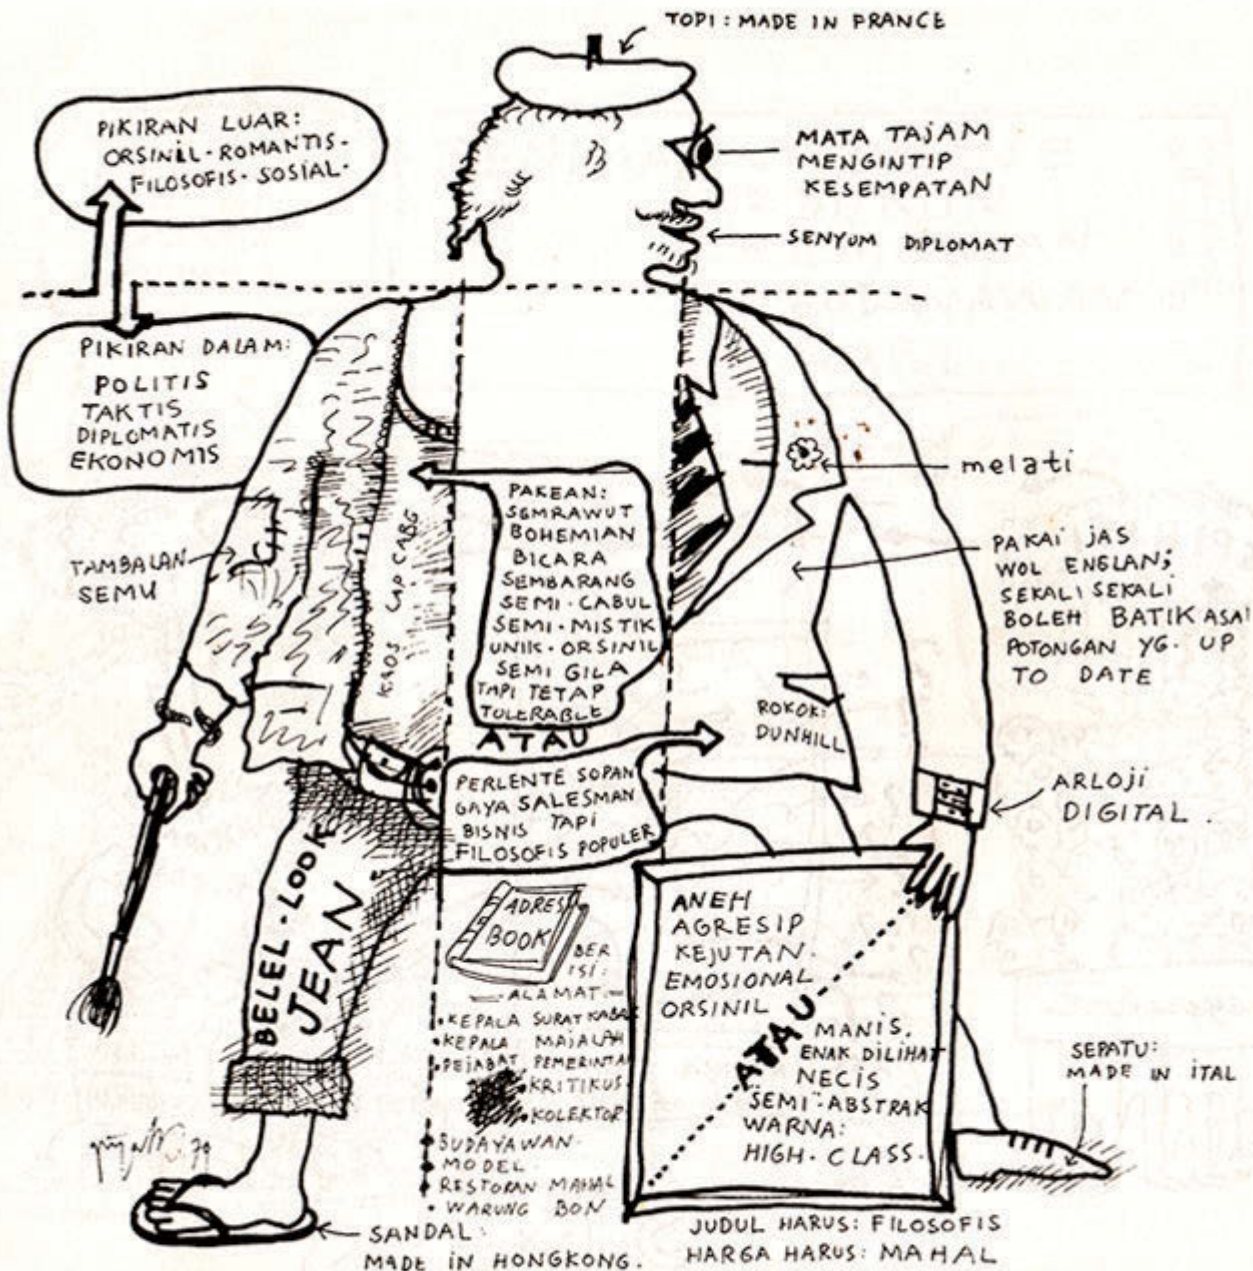 TOPI: MADE IN FRANCE
PIKIRAN LUAR:
ORSINIL-ROMANTIS-
FILOSOFIS-SOSIAL-
MATA TAJAM
MENGINTIP
KESEMPATAN
SENYUM DIPLOMAT
PIKIRAN DALAM:
POLITIS
TAKTIS
DIPLOMATIS
EKONOMIS
melati
TAMBALAN
SEMU
KAOS CAP CABE
PAKEAN:
SEMRAWUT
BOHEMIAN
BICARA
SEMBARANG
SEMI-CABUL
SEMI-MISTIK
UNIK-ORSINIL
SEMI GILA
TAPI TETAP
TOLERABLE
ATAU
PERLENTE SOPAN
GAYA SALESMAN
BISNIS TAPI
FILOSOFIS POPULER
PAKAI JAS
WOL ENGLAN;
SEKALI SEKALI
BOLEH BATIK ASAL
POTONGAN YG. UP
TO DATE
ROKOK:
DUNHILL
ARLOJI
DIGITAL.
BELEL-LOOK
JEAN
ADRES
BOOK
BER
ISI:
ALAMAT:
•KEPALA SURAT KABA
•KEPALA MAJALAH
•PEJABAT PEMERINTA
•KRITIKUS
•KOLEKTOR
•BUDAYAWAN
•MODEL
•RESTORAN MAHAL
•WARUNG BON
ANEH
AGRESIP
KEJUTAN
EMOSIONAL
ORSINIL
ATAU
MANIS.
ENAK DILIHAT
NECIS
SEMI-ABSTRAK
WARNA:
HIGH-CLASS.
SEPATU:
MADE IN ITAL
SANDAL:
MADE IN HONGKONG.
JUDUL HARUS: FILOSOFIS
HARGA HARUS: MAHAL
79